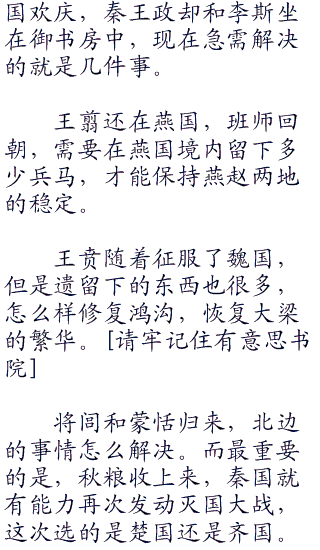 国欢庆，秦王政却和李斯坐
在御书房中，现在急需解决
的就是几件事。
王翦还在燕国，班师回
朝，需要在燕国境内留下多
少兵马，才能保持燕赵两地
的稳定。
王贲随着征服了魏国，
但是遗留下的东西也很多，
怎么样修复鸿沟，恢复大梁
的繁华。[请牢记住有意思书
院]
将闾和蒙恬归来，北边
的事情怎么解决。而最重要
的是，秋粮收上来，秦国就
有能力再次发动灭国大战，
这次选的是楚国还是齐国。